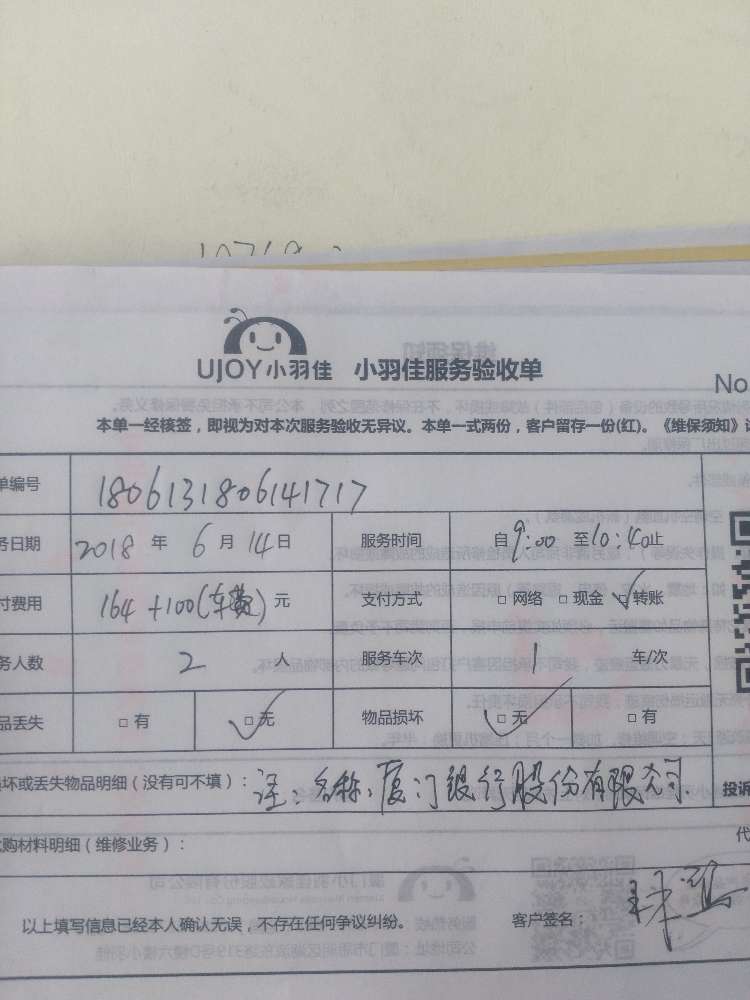 UJOY小羽佳 小羽佳服务验收单
No
本单一经核签，即视为对本次服务验收无异议。本单一式两份，客户留存一份(红)。《维保须知》
单编号 1806131806141717
务日期 2018 年 6 月 14 日 服务时间 自 9:00 至 10:40 止
付费用 164 +100(车费) 元 支付方式 □ 网络 □ 现金 □ 转账
务人数 2 人 服务车次 1 车/次
品丢失 □ 有 □ 无 物品损坏 □ 无 □ 有
损坏或丢失物品明细（没有可不填）：注：名称：厦门银行股份有限公司
投诉
购材料明细（维修业务）：
代
以上填写信息已经本人确认无误，不存在任何争议纠纷。 客户签名：